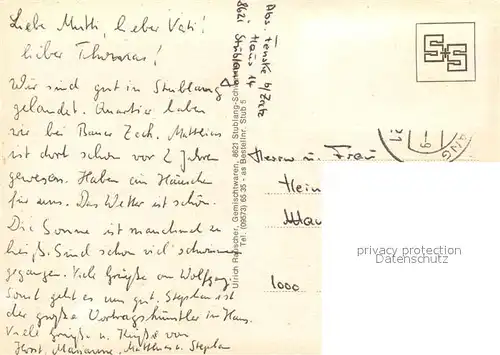 Liebe Mutti, lieber Vati!
lieber Thomas!
Wir sind gut in Stublang
gelandet. Quartier haben
wir bei Bauer Zech. Matthias
ist dort schon vor 2 Jahren
gewesen. Haben ein Häuschen
für uns. Das Wetter ist schön.
Die Sonne ist manchmal zu
heiß. Sind schon viel schwimmen
gegangen. Viele Grüße an Wolfgang
Sonst geht es uns gut. Stephan ist
der große Vortragskünstler im Haus.
Viele Grüße u. Küße von
Horst, Marianne, Matthias u. Stephan
Abs
Haus 14
8621 Stublang
Ulrich Rauscher, Gemischtwaren, 8621 Stublang-Schl
Tel. (09573) 65 35 - as Bestellnr. Stub 5
Herrn u. Frau
Hein
1000
ANG
privacy protection
ansichtskarten-center.de